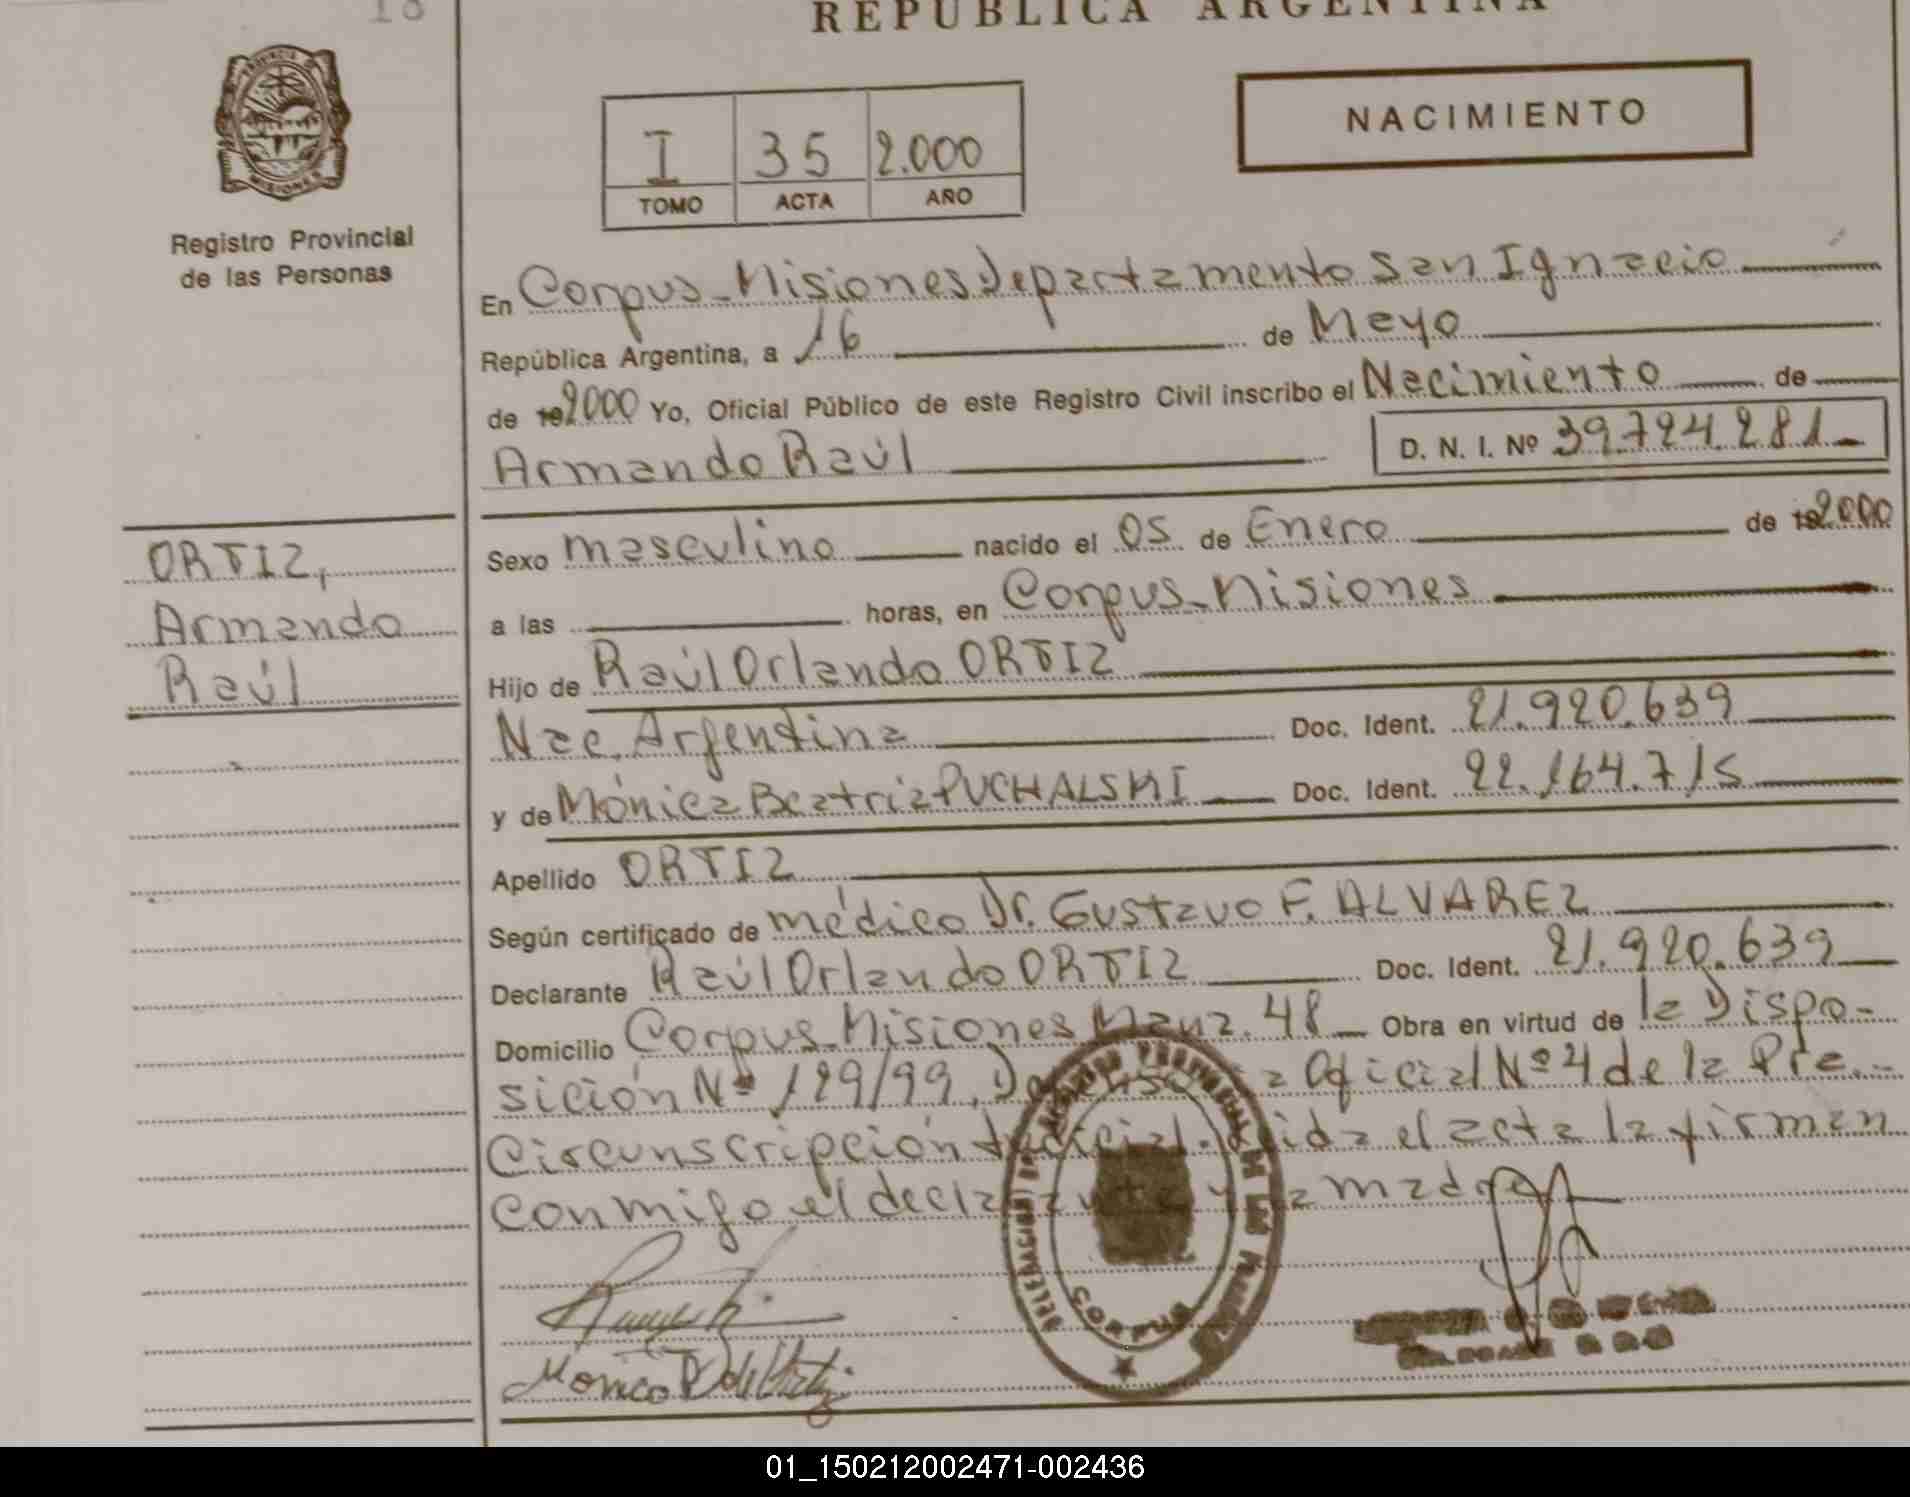 18
REPUBLICA ARGENTINA
PROVINCIA DE MISIONES
NACIMIENTO
I 35 2.000
TOMO ACTA AÑO
Registro Provincial
de las Personas
En Corpus - Misiones Departamento San Ignacio
República Argentina, a 16 de Mayo
de 19 2000 Yo, Oficial Público de este Registro Civil inscribo el Nacimiento de
Armando Raúl D. N. I. Nº 39.724.281
ORTIZ,
Armando
Raúl
Sexo masculino nacido el 05 de Enero de 19 2000
a las horas, en Corpus - Misiones
Hijo de Raúl Orlando ORTIZ
Nac. Argentina Doc. Ident. 21.920.639
y de Mónica Beatriz PUCHALSKI Doc. Ident. 22.164.715
Apellido ORTIZ
Según certificado de médico Dr. Gustavo F. ALVAREZ
Declarante Raúl Orlando ORTIZ Doc. Ident. 21.920.639
Domicilio Corpus - Misiones Manz. 48 Obra en virtud de la Dispo-
sición Nº 129/99, Oficial Nº 4 de la
Circunscripción Judicial. Leída el acta la firman
conmigo el declarante y la madre
DELEGACION CORPUS
Monica P de Ortiz
01_150212002471-002436